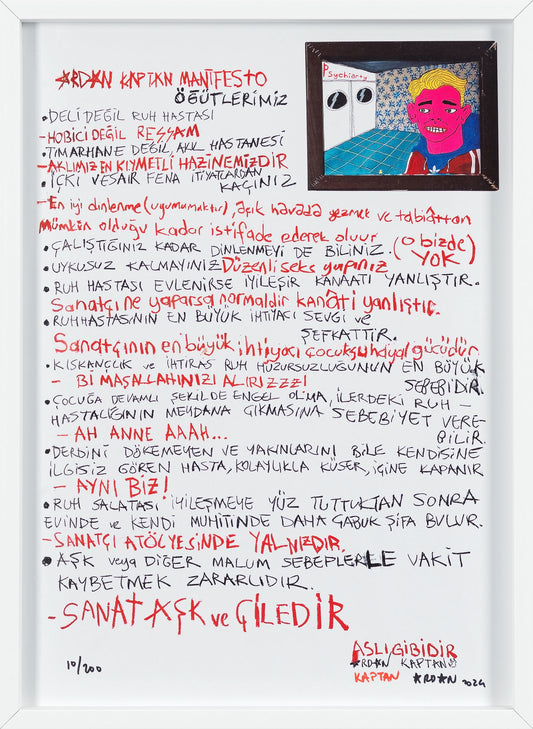 ARDAN KAPTAN MANİFESTO
Psychiatry
ÖĞÜTLERİMİZ
• DELİ DEĞİL RUH HASTASI
- HOBİCİ DEĞİL RESSAM
• TIMARHANE DEĞİL, AKIL HASTANESİ
- AKLIMIZ EN KIYMETLİ HAZİNEMİZDİR
• İÇKİ VESAİR FENA İTİYATLARDAN
KAÇINIZ
- En iyi dinlenme (uyumamaktır), açık havada gezmek ve tabiattan
Mümkün olduğu kadar istifade ederek olur
• ÇALIŞTIĞINIZ KADAR DİNLENMEYİ DE BİLİNİZ. (O BİZDE
YOK)
• UYKUSUZ KALMAYINIZ Düzenli seks yapınız
• RUH HASTASI EVLENİRSE İYİLEŞİR KANAATI YANLIŞTIR.
Sanatçı ne yaparsa normaldir kanâti yanlıştır.
• RUH HASTASININ EN BÜYÜK İHTİYACI SEVGİ VE
ŞEFKATTİR.
Sanatçının en büyük ihtiyacı çocuksu hayal gücüdür.
• KISKANÇLIK ve İHTİRAS RUH HUZURSUZLUĞUNUN EN BÜYÜK
SEBEBİDİR
- Bİ MAŞALLAHINIZI ALIRIZZZ!
• ÇOCUĞA DEVAMLI ŞEKİLDE ENGEL OLMA, İLERDEKİ RUH –
HASTALIĞININ MEYDANA ÇIKMASINA SEBEBİYET VERE-
BİLİR.
- AH ANNE AAAH...
• DERDİNİ DÖKEMEYEN VE YAKINLARINI BİLE KENDİSİNE
İLGİSİZ GÖREN HASTA, KOLAYLIKLA KÜSER, İÇİNE KAPANIR
- AYNI BİZ!
• RUH SALATASI İYİLEŞMEYE YÜZ TUTTUKTAN SONRA
EVİNDE ve KENDİ MUHİTİNDE DAHA ÇABUK ŞİFA BULUR.
- SANATÇI ATÖLYESİNDE YALNIZDIR.
• AŞK veya DİĞER MALUM SEBEPLERLE VAKİT
KAYBETMEK ZARARLIDIR.
- SANAT AŞK ve ÇİLEDİR
ASLI GİBİDİR
ARDAN KAPTAN
10/200
KAPTAN ARDAN 2024